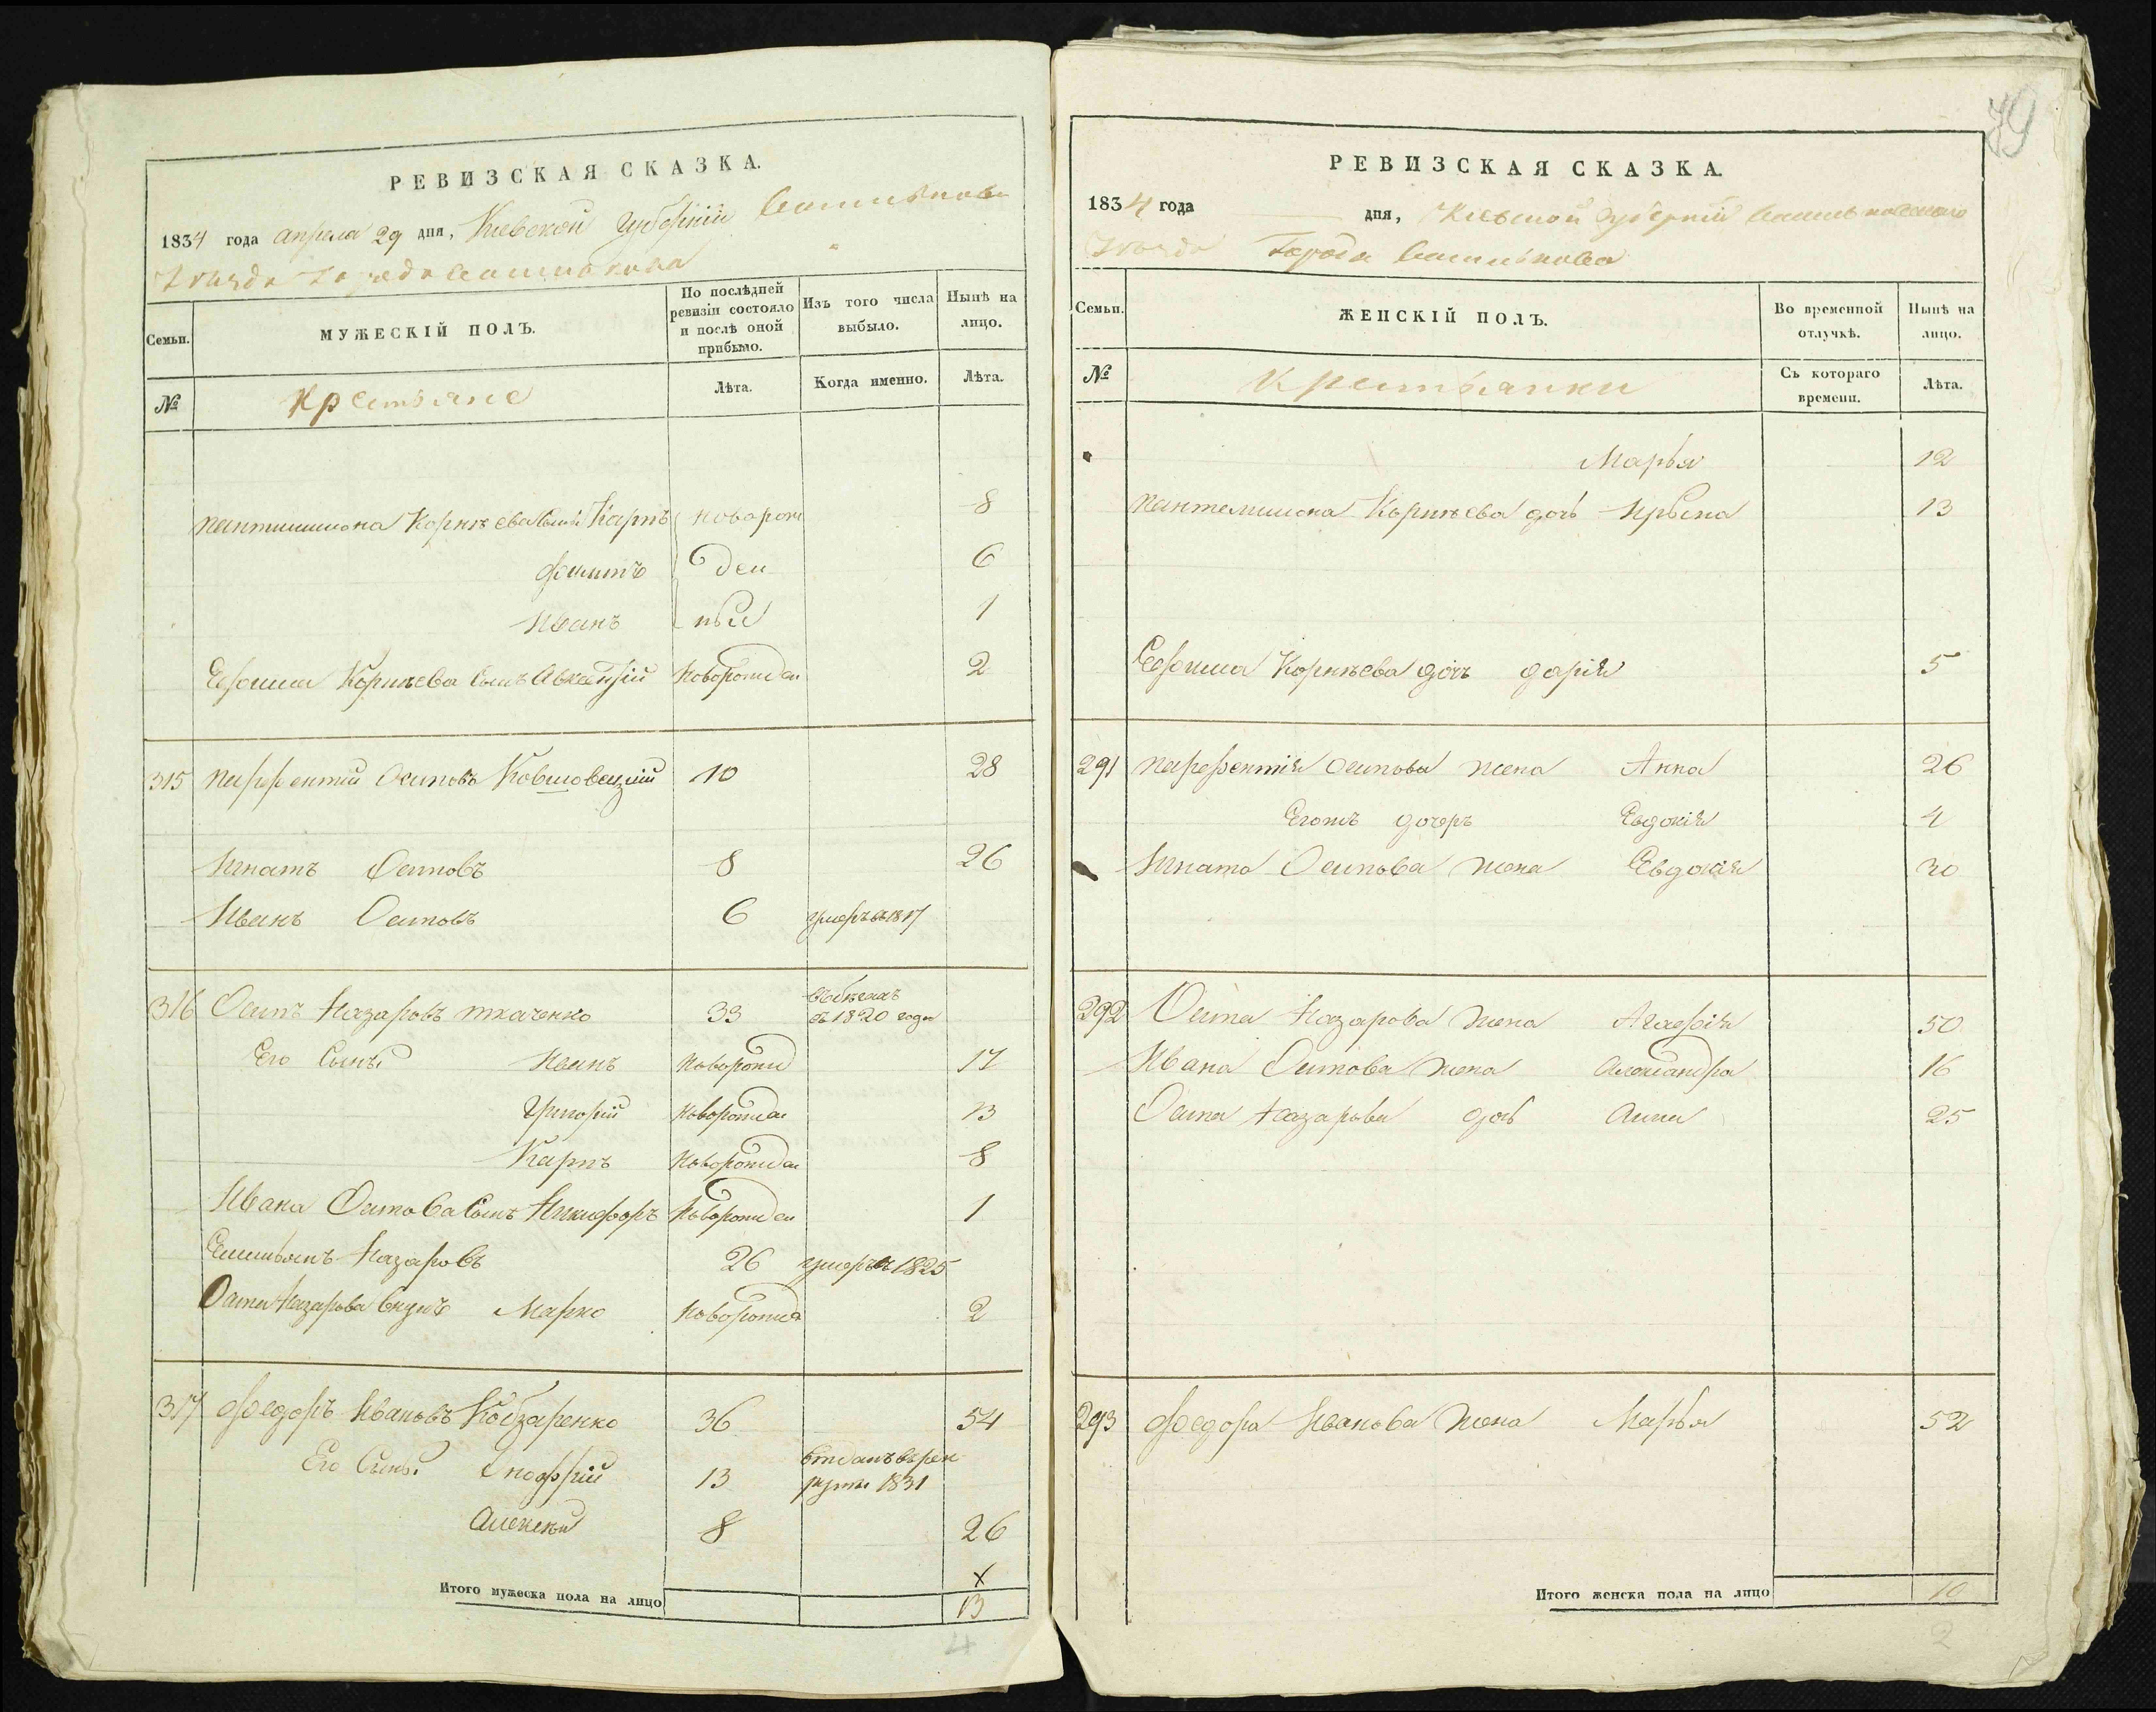 РЕВИЗСКАЯ СКАЗКА.
1834 года апреля 29 дня, Киевской губернии Васильков
Уезда Города Василькова
Семьи.
МУЖЕСКІЙ ПОЛЪ.
По послѣдней ревизіи состояло и послѣ оной прибыло.
Изъ того числа выбыло.
Нынѣ на лицо.
№
Крестьяне
Лѣта.
Когда именно.
Лѣта.
Корнѣева сынъ Карпъ новорож 8
ден 6
Иванъ ные 1
Ефима Корнѣева сынъ новорожден 2
315 Парфентий Осиповъ 10 28
Игнатъ Осиповъ 8 26
Иванъ Осиповъ 6 умеръ въ 1817
316 Осипъ Назаровъ ткаченко 33 въ 1820 году
Его Сыны Иванъ новорожд 17
Григорий новорожден 13
Карпъ новорожден 8
Ивана Осипова сынъ Никифоръ новорожден 1
Емельянъ Назаровъ 26 умеръ в 1825
Осипа Назарова внукъ Марко новорожд 2
317 Федоръ Ивановъ Кобзаренко 36 54
Его Сыны Онофрий 13 отданъ въ рек
руты 1831
Алексей 8 26
х
Итого мужеска пола на лицо 13
4
79
РЕВИЗСКАЯ СКАЗКА.
1834 года дня, Киевской Губернии Васильковского
Уезда Города Василькова
Семьи.
ЖЕНСКІЙ ПОЛЪ.
Во временной отлучкѣ.
Нынѣ на лицо.
№
Крестьянки
Съ котораго времени.
Лѣта.
Марья 12
Пантелимона Корнѣева дочь 13
Ефима Корнѣева дочь дарія 5
291 Парфентія Осипова жена Анна 26
Егожъ дочерь Евдокія 4
Игната Осипова жена Евдокія 30
292 Осипа Назарова жена Агафія 50
Ивана Осипова жена Александра 16
Осипа Назарова дочь Анна 25
293 Федора Иванова жена Марья 52
Итого женска пола на лицо 10
2